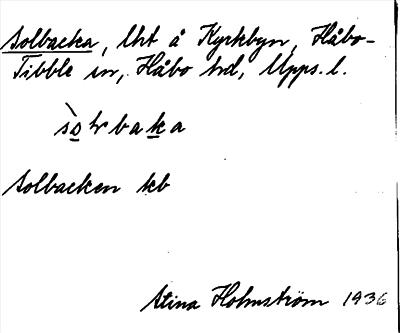 Solbacka, lht å Kyrkbyn, Håbo-
Tibble sn, Håbo hd, Upps. l.
Solbacken kb
Stina Holmström 1936